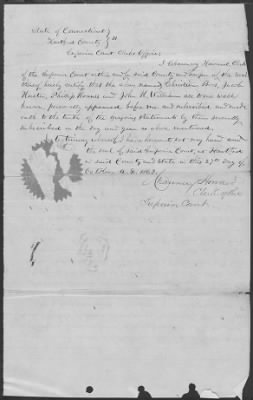 State of Connecticut }
Hartford County } ss
Superior Court Clerks Office
I Chauncey Howard, Clerk
of the Superior Court within and for said County and keeper of the seal
thereof hereby certify that the men named Christian Bros, Jacob
Philip and John H. Williams all to me well
known personally appeared before me and subscribed and made
oath to the truth of the foregoing statements by them severally
subscribed on the day and year above mentioned,
In testimony whereof I have hereunto set my hand and
the seal of said Superior Court, at Hartford
in said County and State on this 27th day of
October A.D. 1862.
Chauncey Howard
Clerk of the
Superior Court